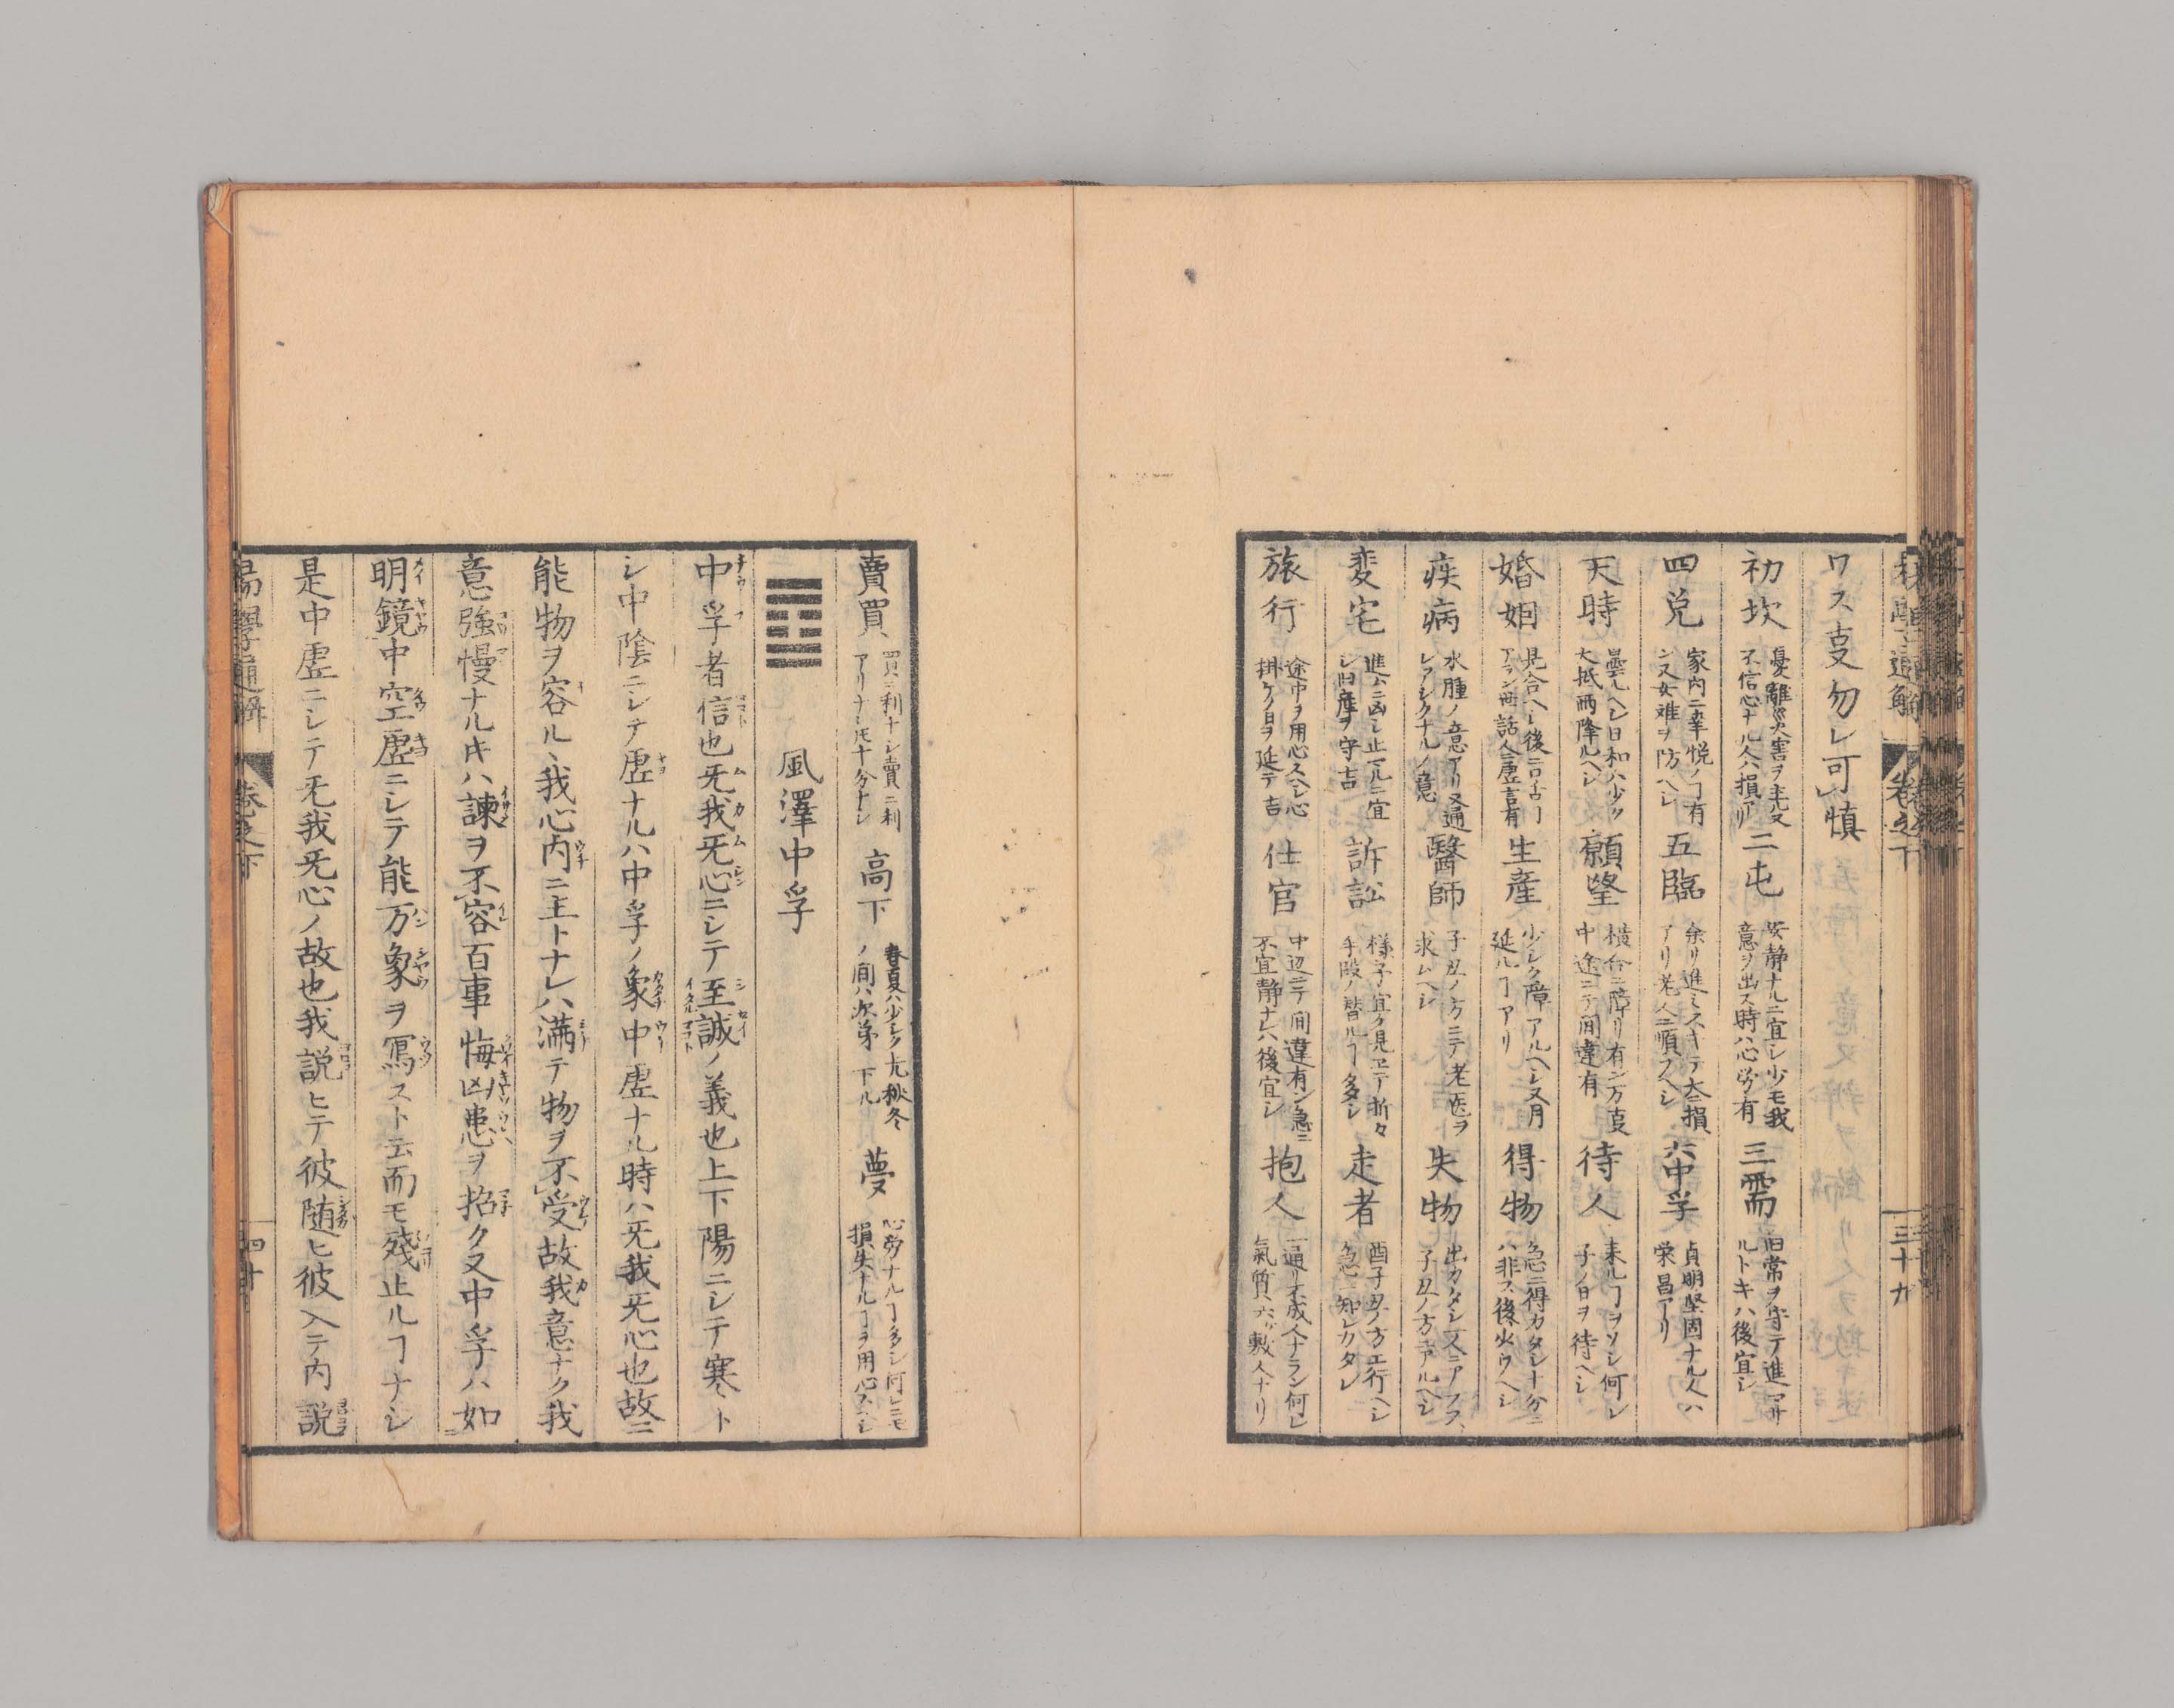 ワス㐂勿レ可慎
初坎 憂離災害ヲ主又
不信心ナル人ハ損アリ
二屯 安静ナルニ宜シ少モ我
意ヲ出ス時ハ心労有
三需 旧常ヲ守テ進マサ
ルトキハ後宜シ
四兌 家内ニ和悦ノヿ有
ン又女难ヲ防ヘシ
五臨 余リ進ミスキテ大ニ損
アリ老人ニ順フヘシ
六中孚 貞明堅固ナル人ハ
栄昌アリ
天時 曇ルヘシ日和ハ少ク
大抵雨降ルヘシ
願望 横合ニ障リ有ン万叓
中途ニテ間違有
待人 来ルヿヲソシ何レ
子ノ日ヲ待ヘシ
婚姻 見合ヘシ後ニ口舌
アラン毎話人虚言有
生産 少シク障アルヘシ又月
延ルヿアリ
得物 急ニ得カタシ十分ニ
ハ非ス後火ウヘシ
疾病 水腫ノ意アリ又通
シアシクナルノ意
醫師 子丑ノ方ニテ老医ヲ
求ムヘシ
失物 出カタシ
子丑ノ方ニアルヘシ
変宅 進ムニ凶シ止マルニ宜
シ旧産ヲ守吉
訴訟 様子宜ク見エテ折々
手段ノ替ルヿ多シ
走者 酉子丑ノ方エ行ヘシ
急ニ知レカタシ
旅行 途中ヲ用心スヘシ心
掛ケノ日ヲ延テ吉
仕官 中辺ニテ間違有ン急ニ
不宜静ナレハ後宜シ
抱人 一通リ不成人ナラン何レ
氣質六ツ敷人ナリ
三十九
賣買 買ニ利ナシ賣ニ利
アリナレ𪜈十分ナシ
高下 春夏ハ少シク亢秋冬
ノ間ハ次第下ル
夢 心労ナルヿ多シ何レニモ
損失ナルヿヲ用心スヘシ
䷼ 風澤中孚
中孚者信也旡我旡心ニシテ至誠ノ義也上下陽ニシテ寒ヽト
シ中陰ニシテ虚ナルハ中孚ノ象中虚ナル時ハ旡我旡心也故ニ
能物ヲ容ルヽ我心内ニ主トナレハ満テ物ヲ不受故我意ナク我
意強慢ナルキハ諫ヲ不容百事悔凶患ヲ招ク又中孚ハ如
明鏡中空虚ニシテ能万象ヲ寫スト云而モ残止ルヿナシ
是中虚ニシテ旡我旡心ノ故也我説ヒテ彼随ヒ彼入テ内説
易學通解 巻之下 四十